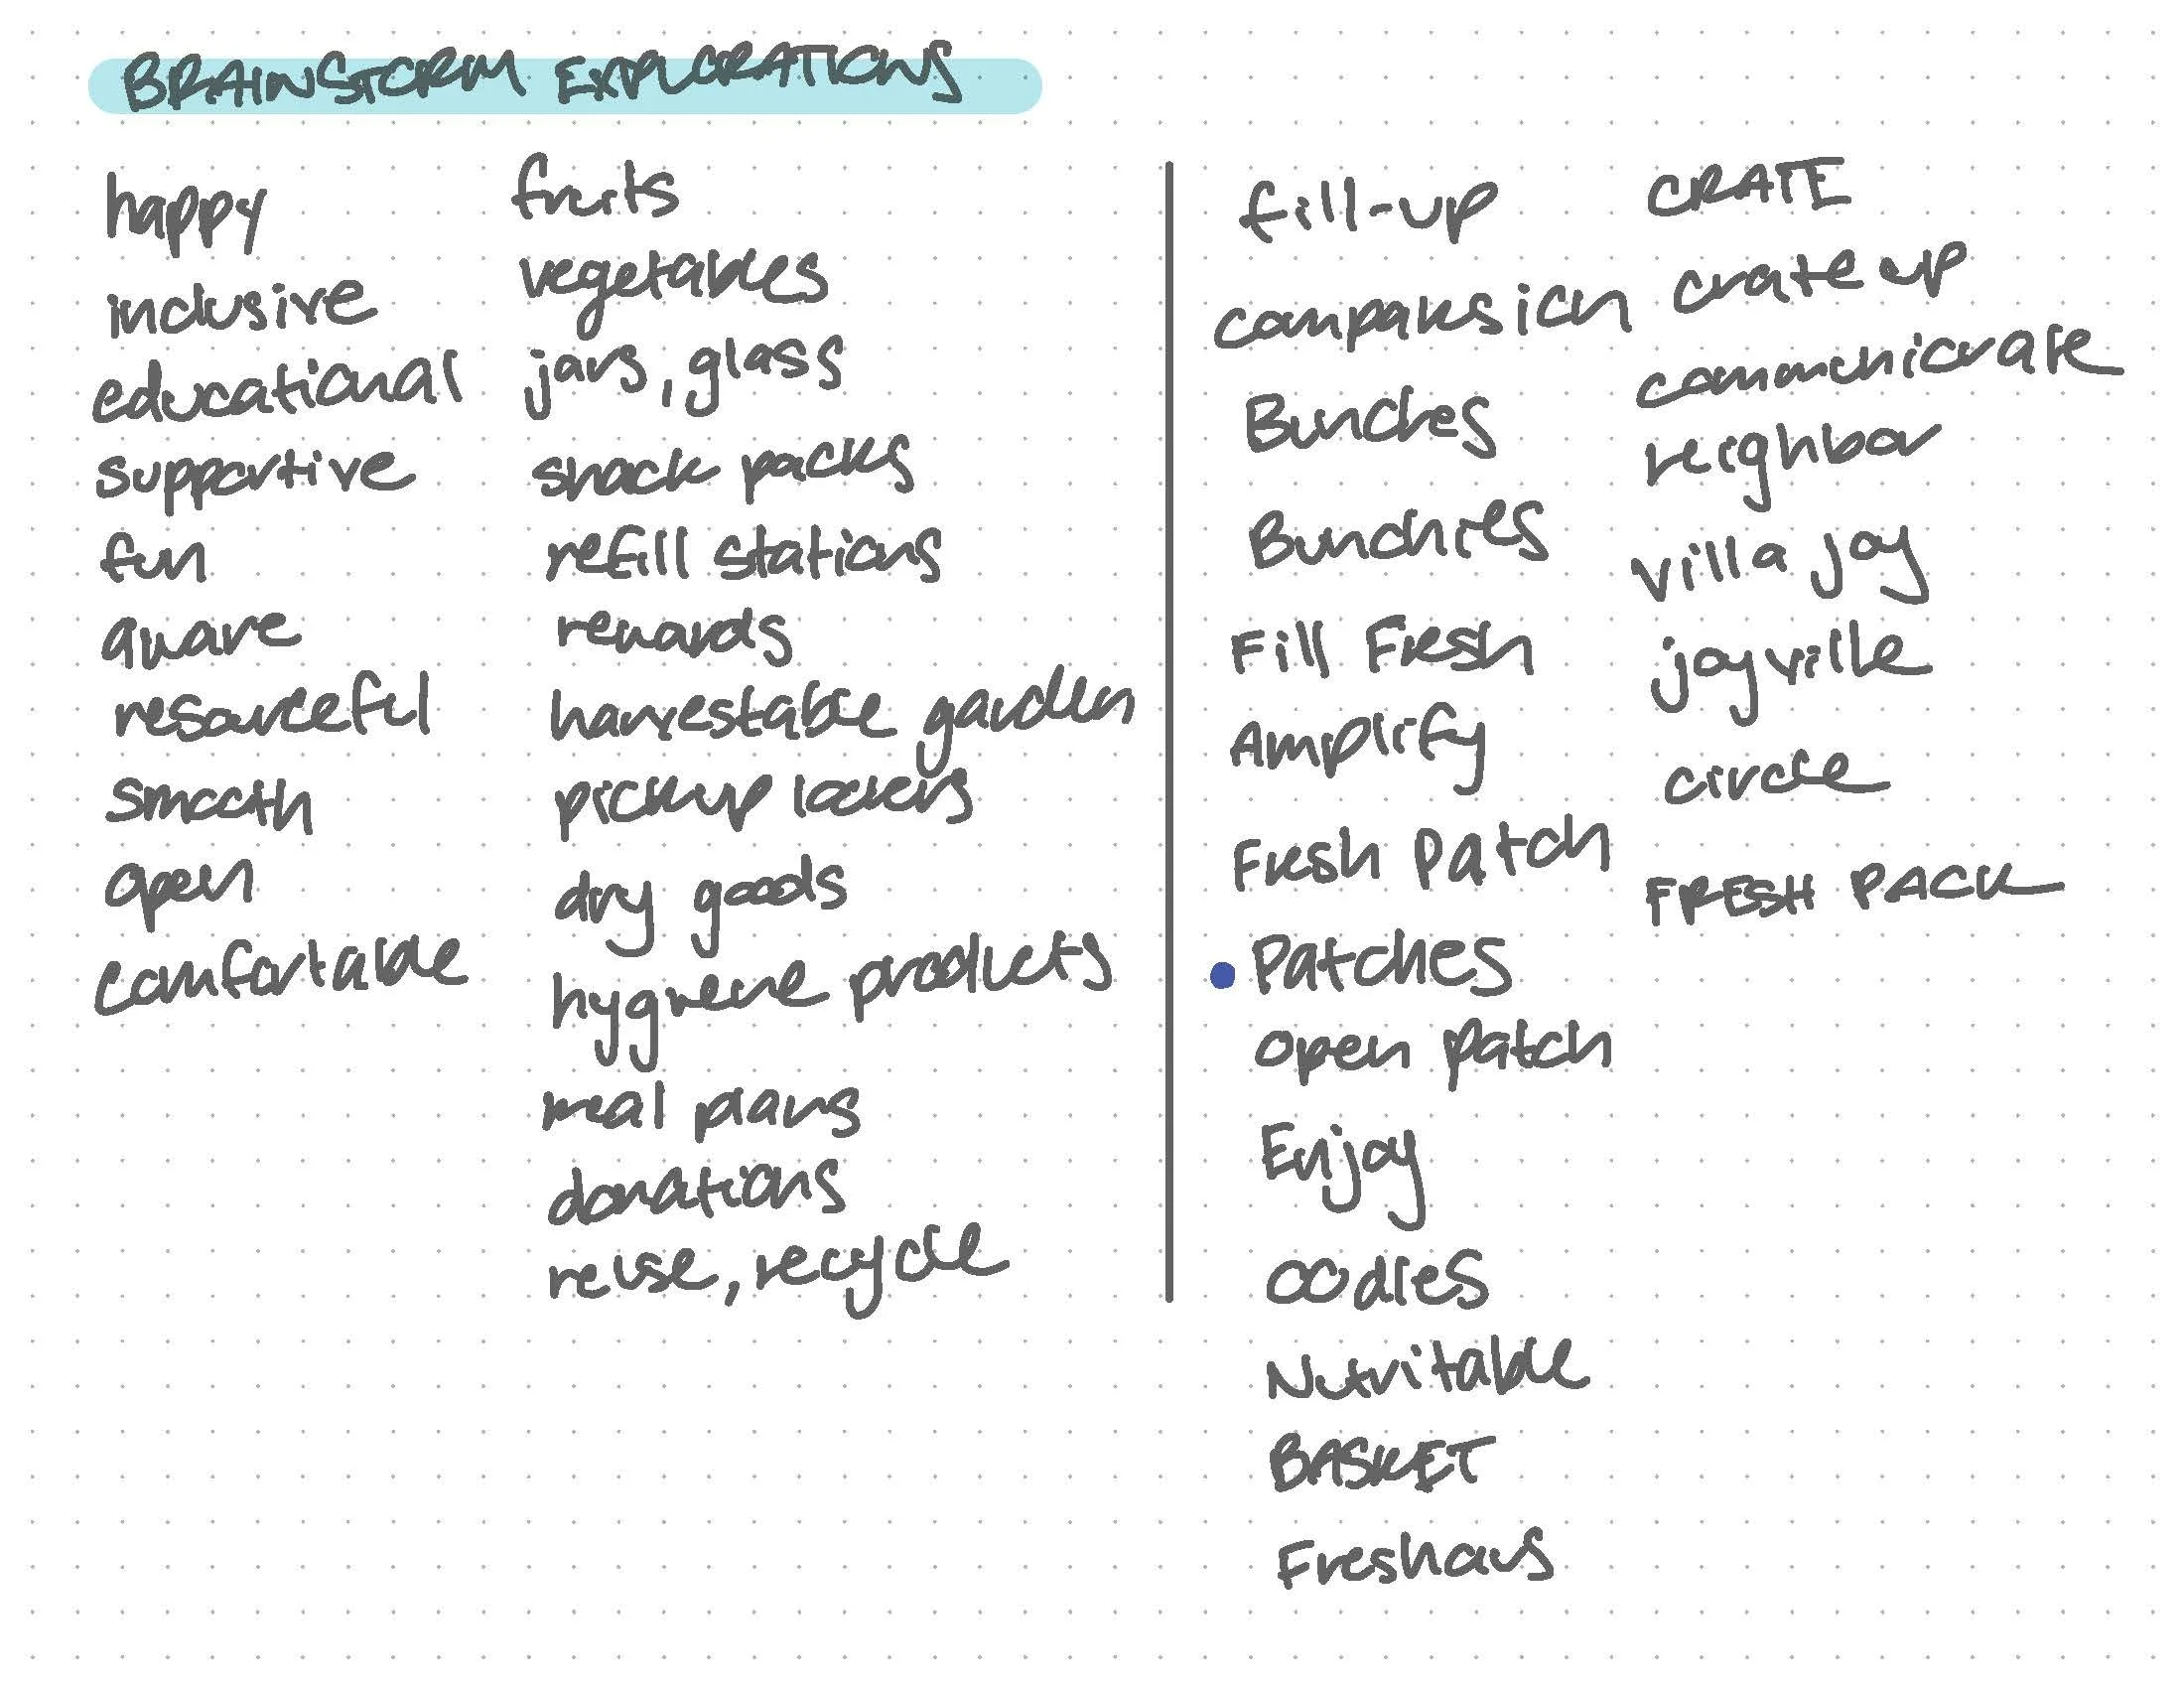 BRAINSTORM EXPLORATIONS
happy
inclusive
educational
supportive
fun
aware
resourceful
smooth
open
comfortable
fruits
vegetables
jars, glass
snack packs
refill stations
rewards
harvestable garden
pickup lockers
dry goods
hygiene products
meal plans
donations
reuse, recycle
fill-up
Bunches
Bunchies
Fill Fresh
Amplify
Fresh Patch
Patches
Open patch
Enjoy
oodles
Nutritable
BASKET
Freshaus
CRATE
crate up
communicrate
neighbor
villa joy
joyville
circle
FRESH PACK